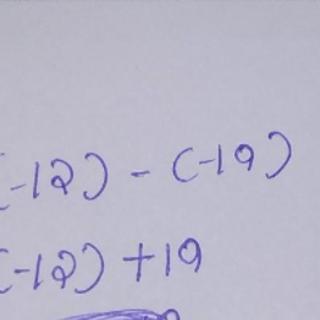 (-12) - (-19)
(-12) + 19